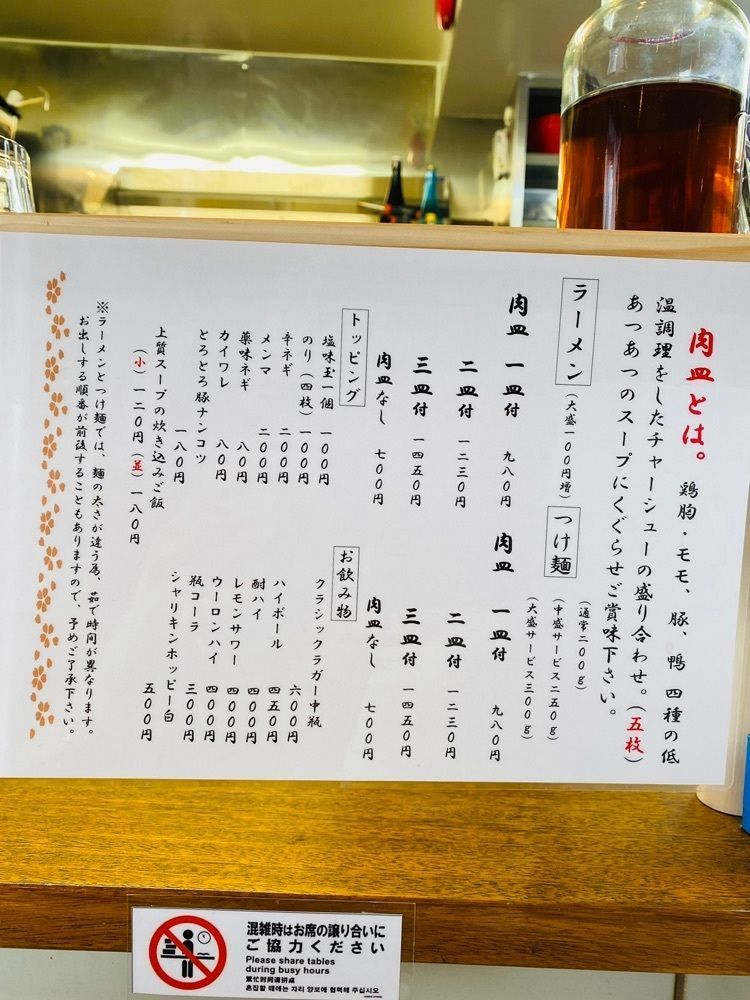 肉皿とは。
鶏胸・モモ、豚、鴨 四種の低
温調理をしたチャーシューの盛り合わせ。(五枚)
あつあつのスープにくぐらせご賞味下さい。
ラーメン
(大盛一00円増)
肉皿 一皿付 九八0円
二皿付 一二三0円
三皿付 一四五0円
肉皿なし 七00円
つけ麺
(通常二00g)
(中盛サービス二五0g)
(大盛サービス三00g)
肉皿 一皿付 九八0円
二皿付 一二三0円
三皿付 一四五0円
肉皿なし 七00円
トッピング
塩味玉一個 一00円
のり(四枚) 一00円
辛ネギ 二00円
メンマ 二00円
薬味ネギ 八0円
カイワレ 八0円
とろとろ豚ナンコツ
一八0円
上質スープの炊き込みご飯
(小)一二0円(並)一八0円
お飲み物
クラシックラガー中瓶
六00円
ハイボール 四五0円
酎ハイ 四00円
レモンサワー 四00円
ウーロンハイ 四00円
瓶コーラ 三00円
シャリキンホッピー白
五00円
※ラーメンとつけ麺では、麺の太さが違う為、茹で時間が異なります。
お出しする順番が前後することもありますので、予めご了承下さい。
混雑時はお席の譲り合いに
ご協力ください
Please share tables
during busy hours
繁忙时间请拼桌
혼잡할 때에는 자리 양보에 협력해 주십시오